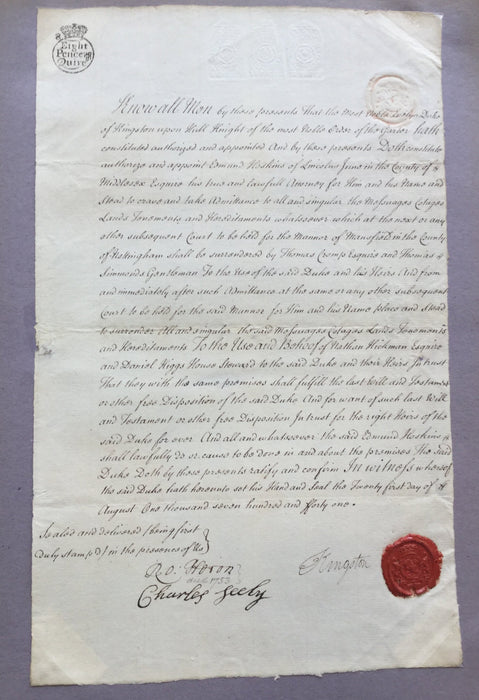 Eight
Pence pr
Quire
Know all Men by these presents That the most Noble Evelyn Duke
of Kingston upon Hull Knight of the most Noble Order of the Garter hath
constituted authorized and appointed And by these presents Doth constitute
authorize and appoint Edmund Hoskins of Lincolns Inne in the County of
Middlesex Esquire his true and lawfull Attorney for Him and his Name and
Stead to crave and take Admittance to all and singular the Messuages Cotages
Lands Tenements and Hereditaments whatsoever which at the next or any
other subsequent Court to be held for the Mannor of Mansfield in the County
of Nottingham shall be surrendered by Thomas Cromp Esquire and Thomas
Simmonds Gentleman To the Use of the said Duke and his Heirs And from
and immediately after such Admittance at the same or any other subsequent
Court to be held for the said Mannor for Him and his Name place and Stead
to surrender All and singular the said Messuages Cotages Lands Tenements
and Hereditaments To the Use and Behoof of Nathan Hickman Esquire
and Daniel Higgs House Steward to the said Duke and their Heirs In trust
That they with the same premises shall fulfill the last Will and Testament
or other free Disposition of the said Duke And for want of such last Will
and Testament or other free Disposition In trust for the right Heirs of the
said Duke for ever And all and whatsoever the said Edmund Hoskins
shall lawfully do or cause to be done in and about the premises The said
Duke Doth by these presents ratify and confirm In witness whereof
the said Duke hath hereunto set his Hand and Seal the Twenty first day of
August One thousand seven hundred and fforty one.
Sealed and delivered (being first
Duly stamped) in the presence of Us
Kingston
Ro: Heron
died 1753
Charles Seely